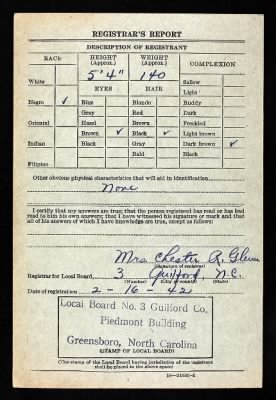 REGISTRAR'S REPORT
DESCRIPTION OF REGISTRANT
RACE HEIGHT (Approx.) WEIGHT (Approx.) COMPLEXION
5' 4" 140
White Sallow
EYES HAIR Light
Negro ✓ Blue Blonde Ruddy
Gray Red Dark
Oriental Hazel Brown Freckled
Brown ✓ Black ✓ Light brown
Indian Black Gray Dark brown ✓
Bald Black
Filipino
Other obvious physical characteristics that will aid in identification
None
I certify that my answers are true; that the person registered has read or has had
read to him his own answers; that I have witnessed his signature or mark and that
all of his answers of which I have knowledge are true, except as follows:
Mrs. Chester R. Glenn
(Signature of registrar)
Registrar for Local Board 3 Guilford N.C.
(Number) (City or county) (State)
Date of registration 2 - 16 - 42
Local Board No. 3 Guilford Co.
Piedmont Building
Greensboro, North Carolina
(STAMP OF LOCAL BOARD)
(The stamp of the Local Board having jurisdiction of the registrant
shall be placed in the above space.)